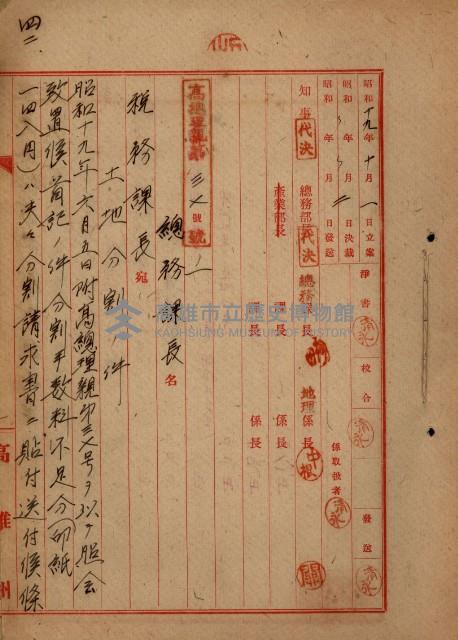 四二
昭和十九年十月一日立案
昭和 年 月 日決裁
昭和 年 月 日發送
淨書
校合
發送
係取扱者
知事
代決
總務部長
代決
產業部長
總務課長
課長
課長
地理係長
係長
係長
中根
高總理親第三乂號ノ一
總務課長名
稅務課長宛
土地分割ノ件
昭和十九年六月五日附高總理親第三乂号ヲ以テ照会
致置候首記ノ件分割手数料不足分(印紙
一四八円)ハ夫々分割請求書ニ貼付送付候條
高雄州
高雄市立歷史博物館
KAOHSIUNG MUSEUM OF HISTORY